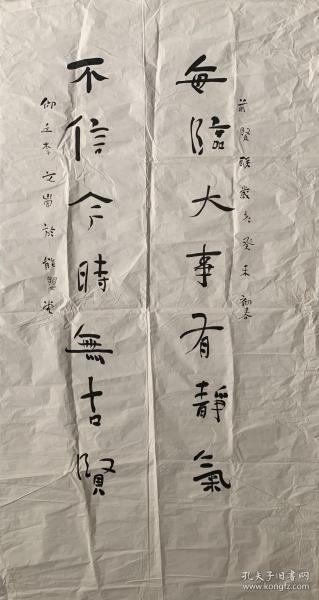 前賢聯歲在癸未初春
每臨大事有靜氣
不信今時無古賢
仰之李文崗於能嬰堂
孔夫子旧书网